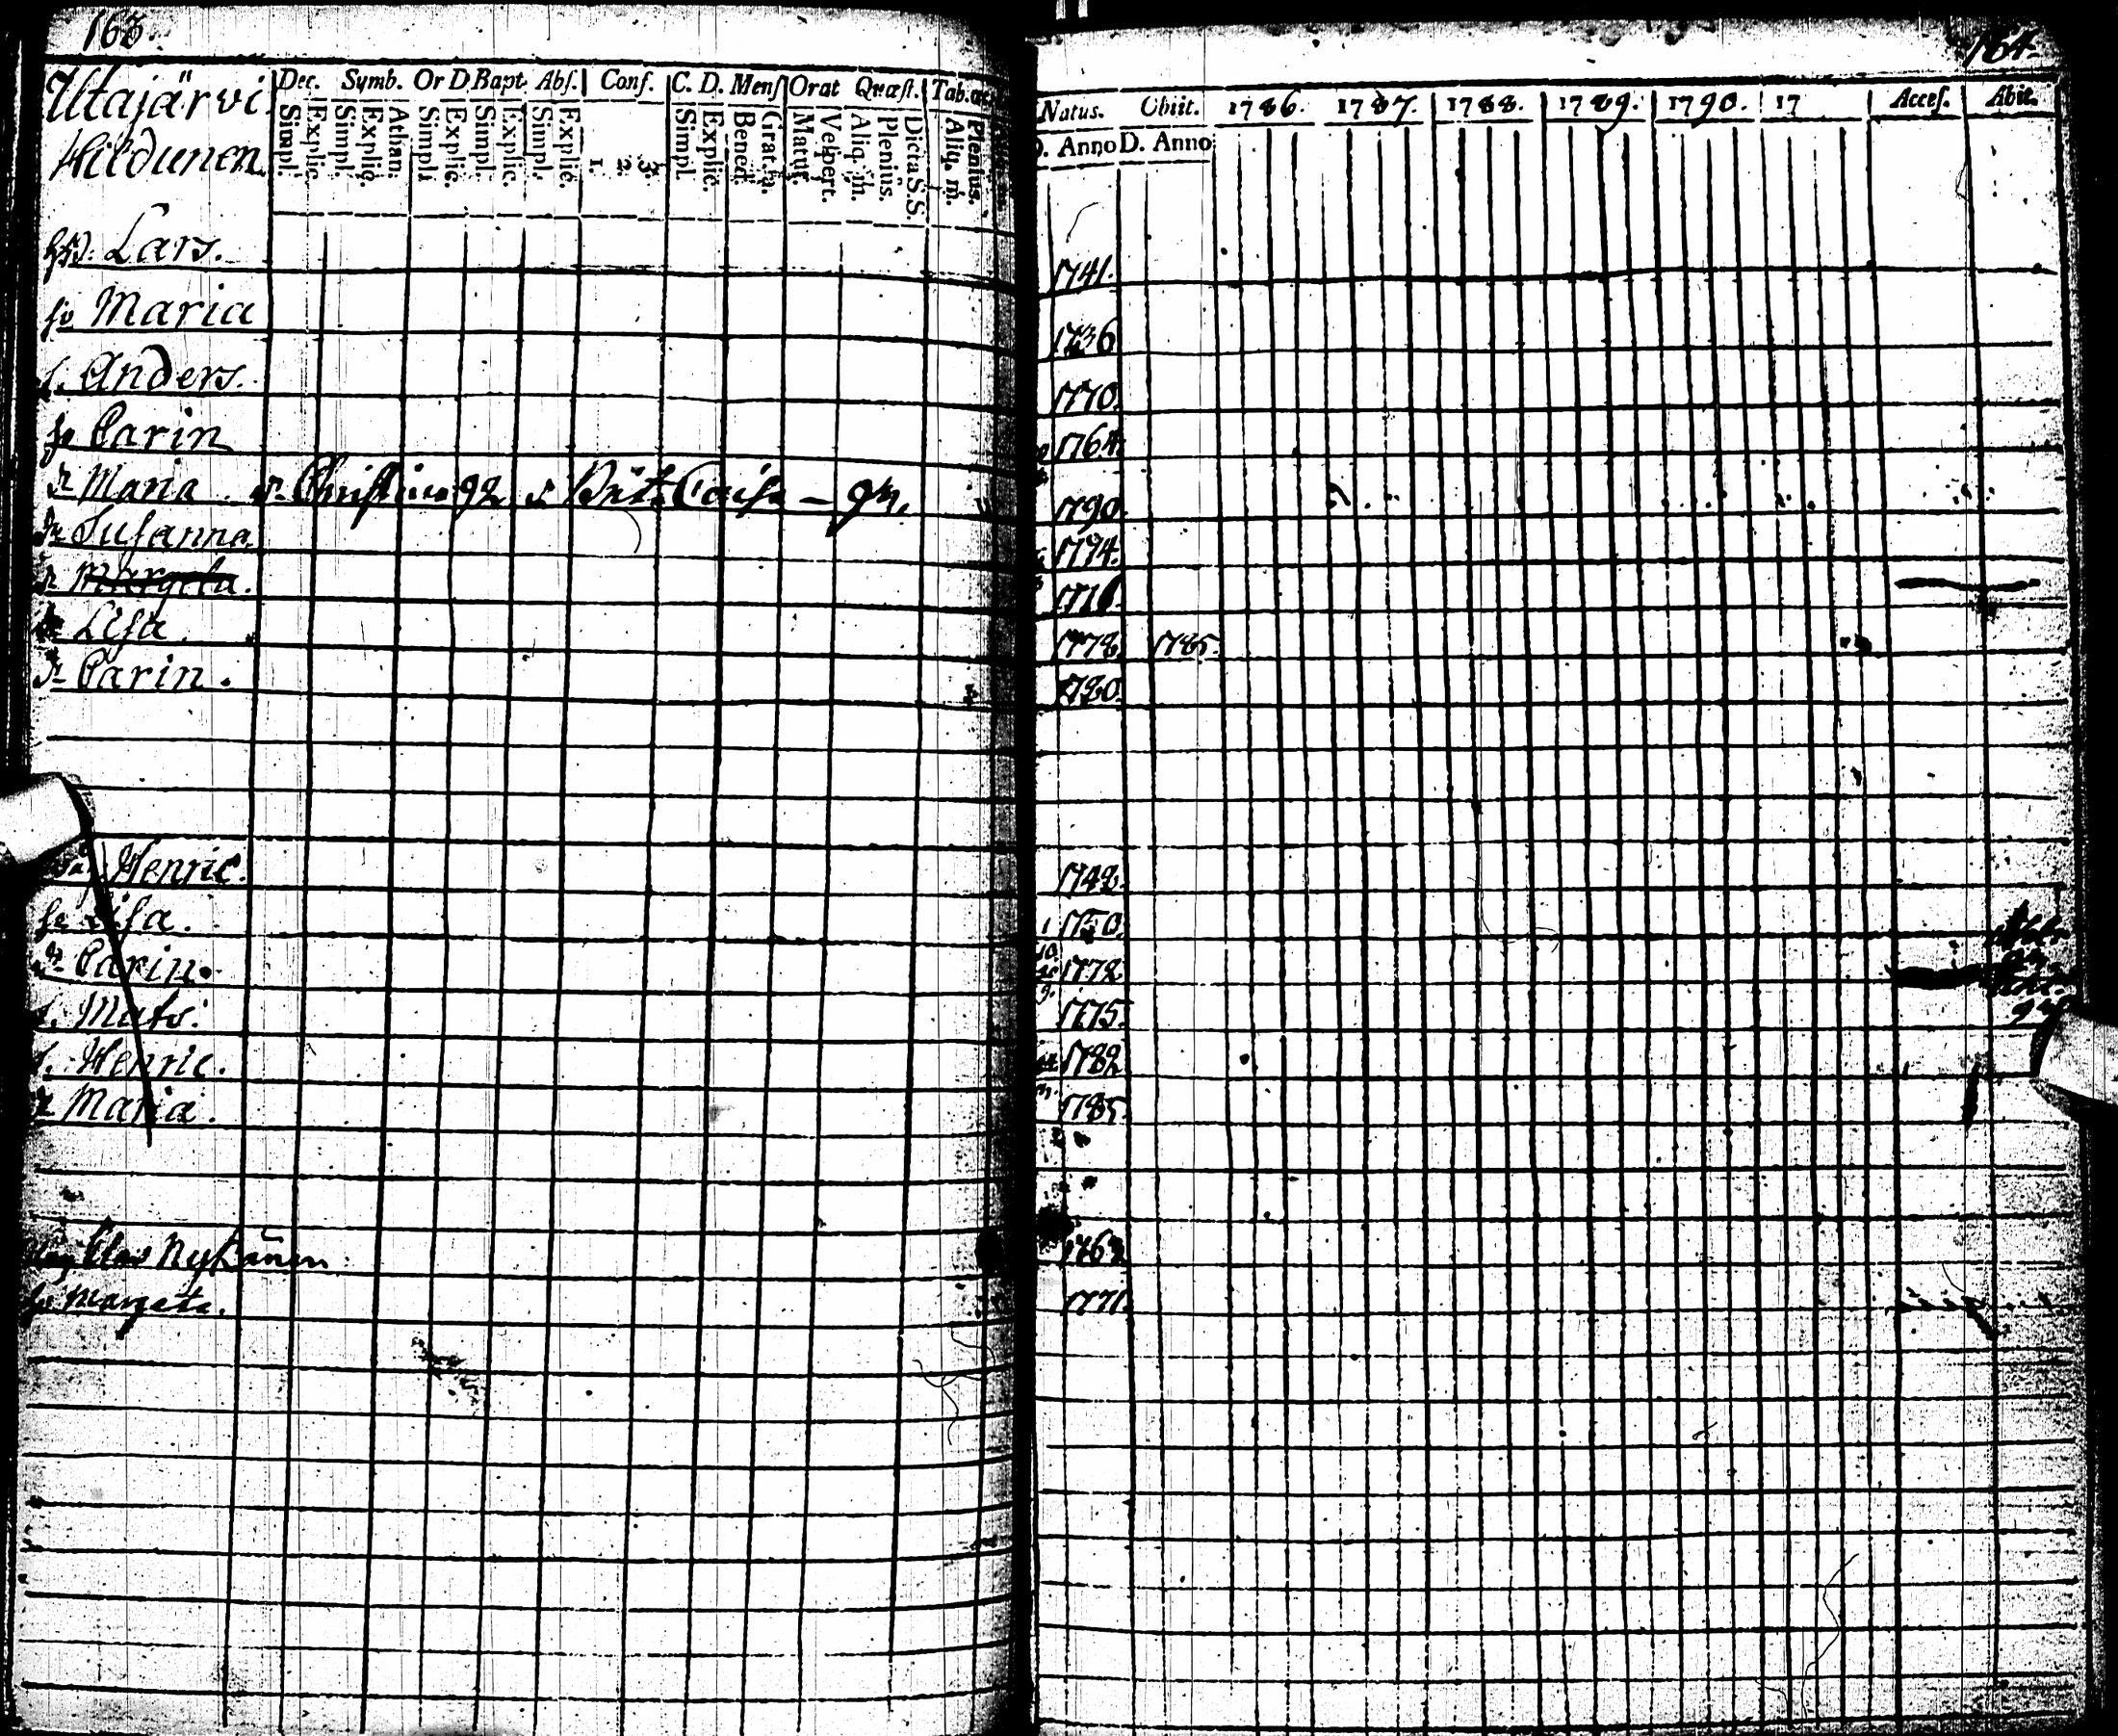 163.
Utajärvi
Hildunen
Dec. Symb. Or D. Bapt. Abs. Conf. C. D. Mens Orat Quæst. Tab.
Simpl. Explic. Simpl. Explic. Athan. Simpl. Explic. Simpl. Explic. Simpl. Explic. 1. 2. 3. Simpl. Explic. Bened. Grat. a. Matut. Vespert. Aliq. m. Plenius. Dicta S. S. Aliq. m. Plenius.
Lars.
Maria
s. Anders.
Carin
Maria Christina 92 Brit. Caisa –
Susanna
Margeta.
Lisa.
Carin.
Henric.
Lisa.
Carin.
s. Mats.
s. Henric.
Maria.
Olav Nykänen
Margeta.
164
Natus. Obiit. 1786. 1787. 1788. 1789. 1790. 17 Acces. Abit.
D. Anno D. Anno
1741.
1736
1770.
1764.
1790.
1774.
1776.
1778. 1785.
1780.
1748.
1 1750.
1772
1775.
1782
1785.
1762
1771.